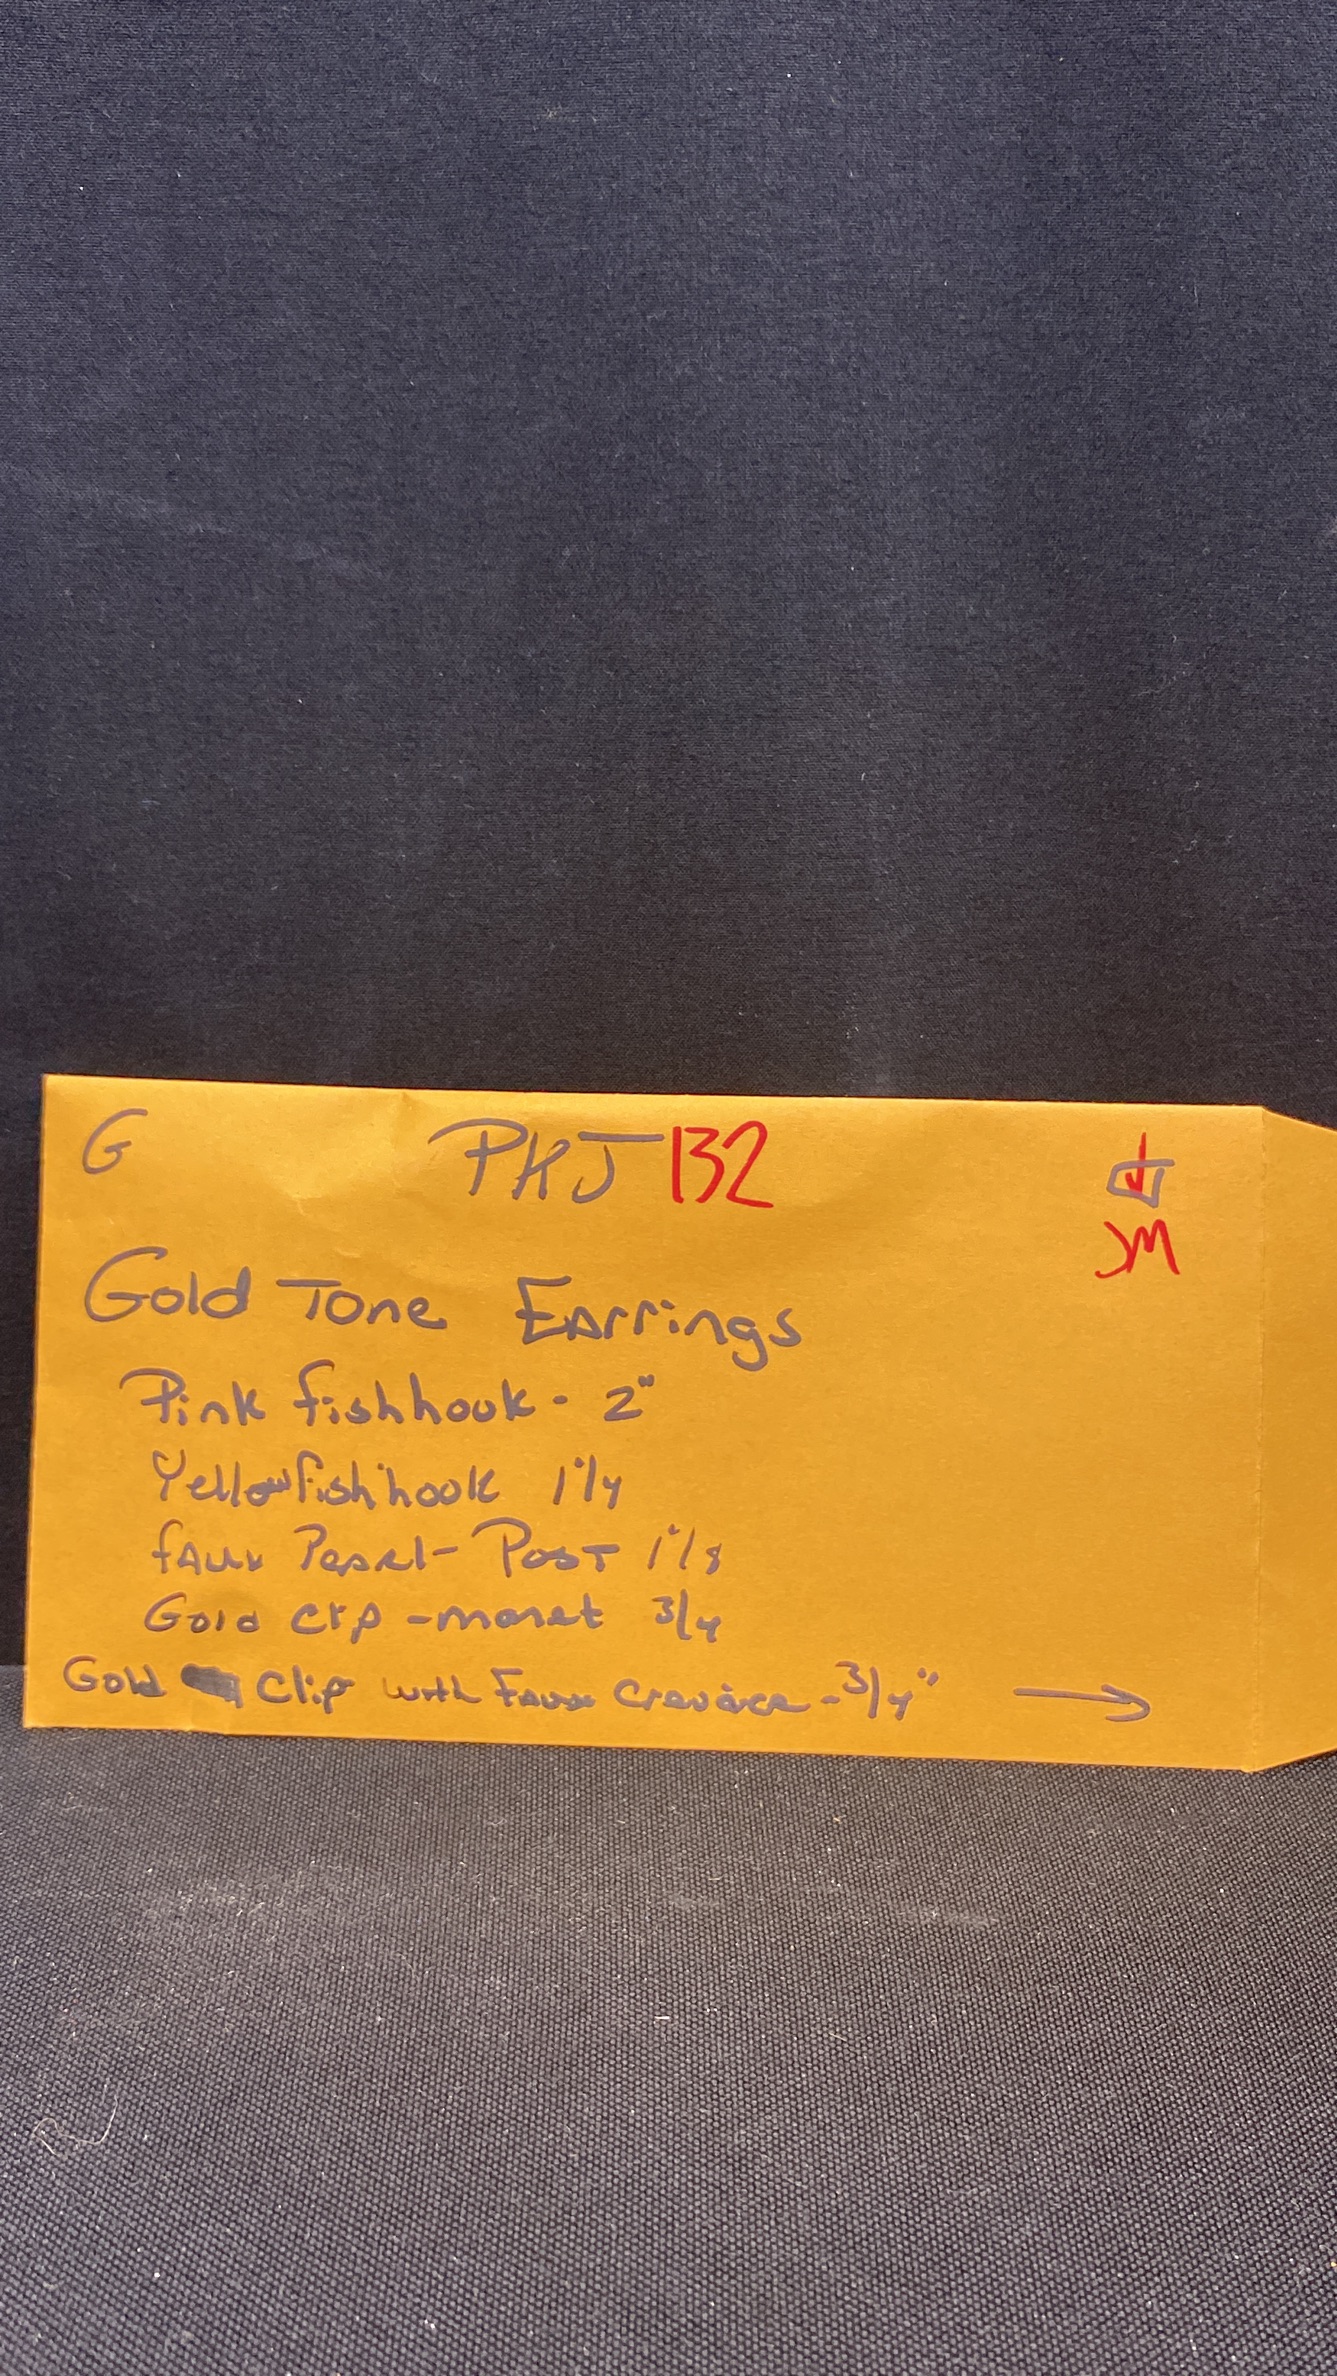 G PKJ 132
JM
Gold Tone Earrings
Pink fishhook - 2"
Yellow fishhook 1 1/4
fAux Pearl - Post 1 1/8
Gold clip - monet 3/4
Gold Clip with Faux - 3/4" →